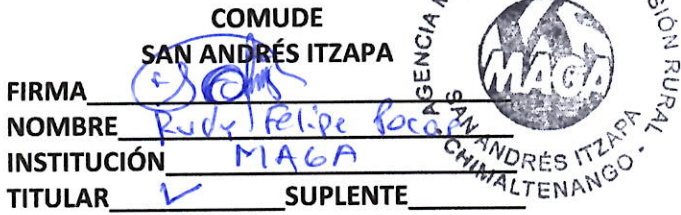 COMUDE
SAN ANDRÉS ITZAPA
FIRMA
NOMBRE Rudy Felipe
INSTITUCIÓN MAGA
TITULAR ✓ SUPLENTE
AGENCIA
SIÓN RURAL
MAGA
SAN ANDRÉS ITZAPA
- CHIMALTENANGO -